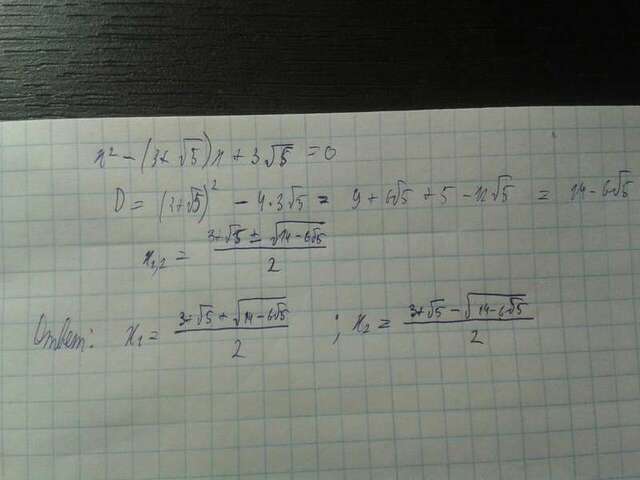 x² - (3+√5)x + 3√5 = 0
D = (3+√5)² - 4·3√5 = 9 + 6√5 + 5 - 12√5 = 14 - 6√5
x₁,₂ = (3+√5 ± √(14-6√5))/2
Ответ: x₁ = (3+√5 + √(14-6√5))/2 ; x₂ = (3+√5 - √(14-6√5))/2